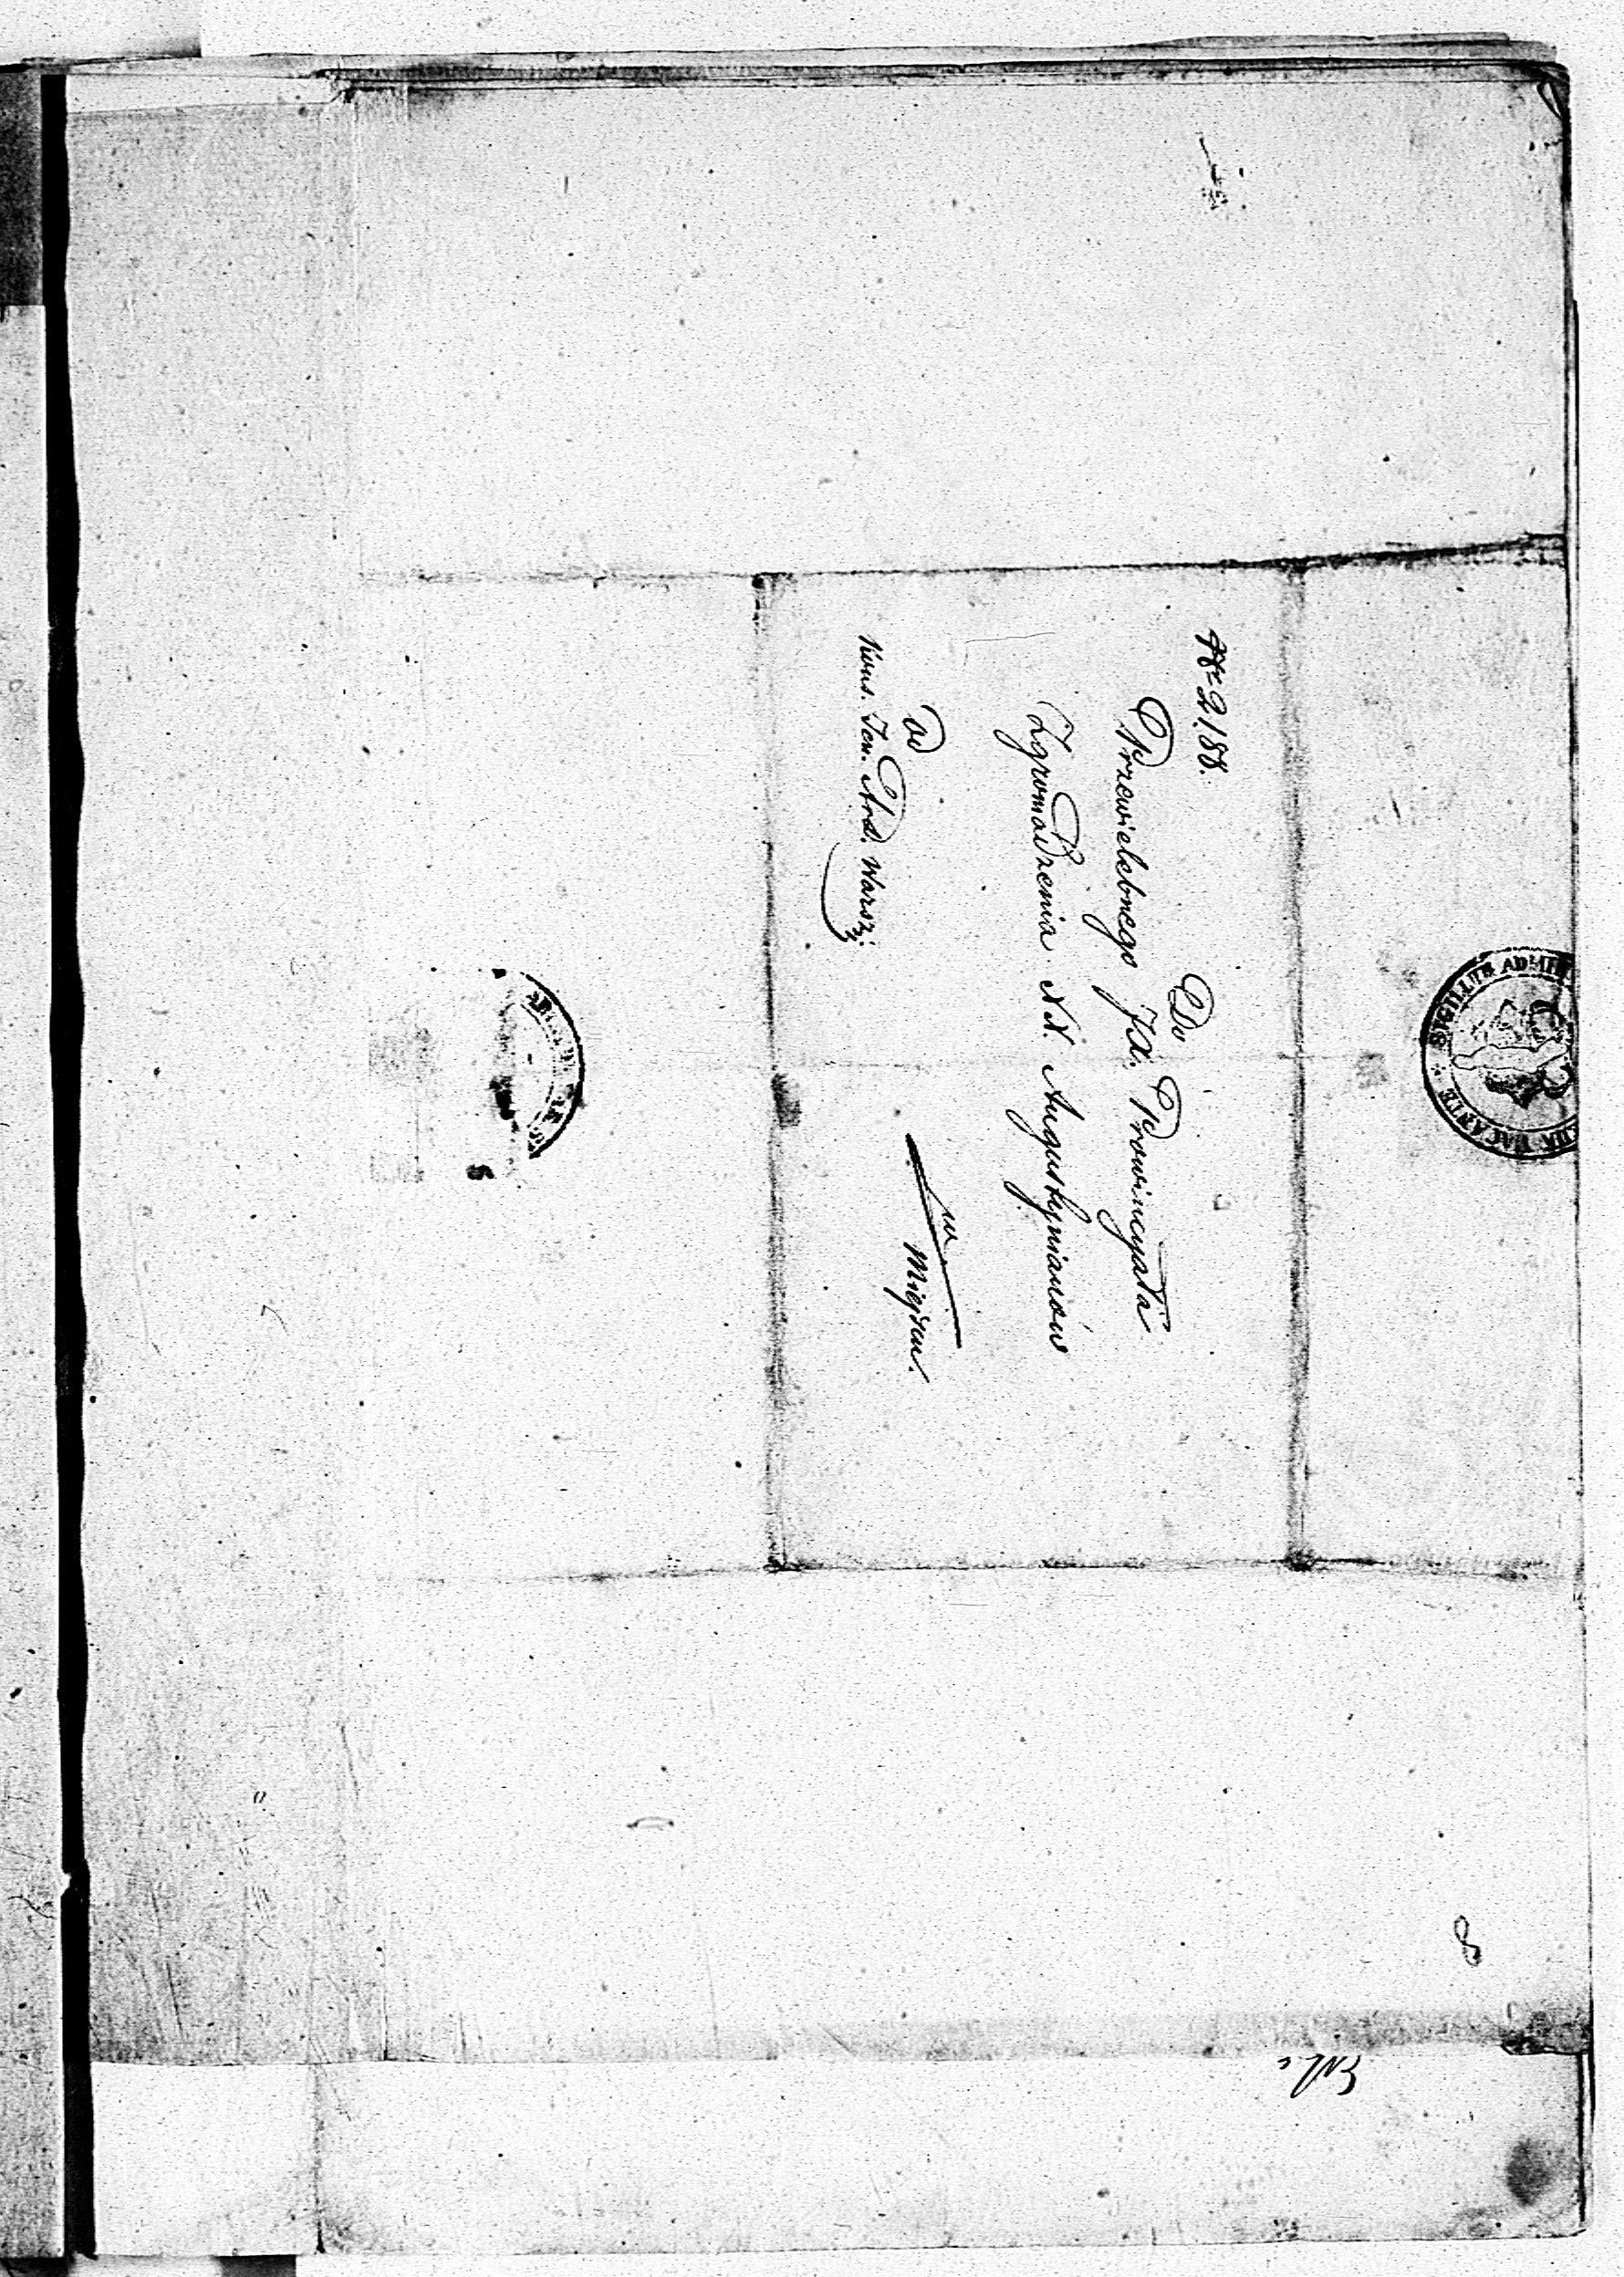 No 2,188.
Do
Przewielebnego JX. Prowincyała
Zgromadzenia XX. Augustynianów
Od
Kons. Jen. Ard. Warsz:
w Miejscu.
SIGILLUM ADMI
VACANTE
8